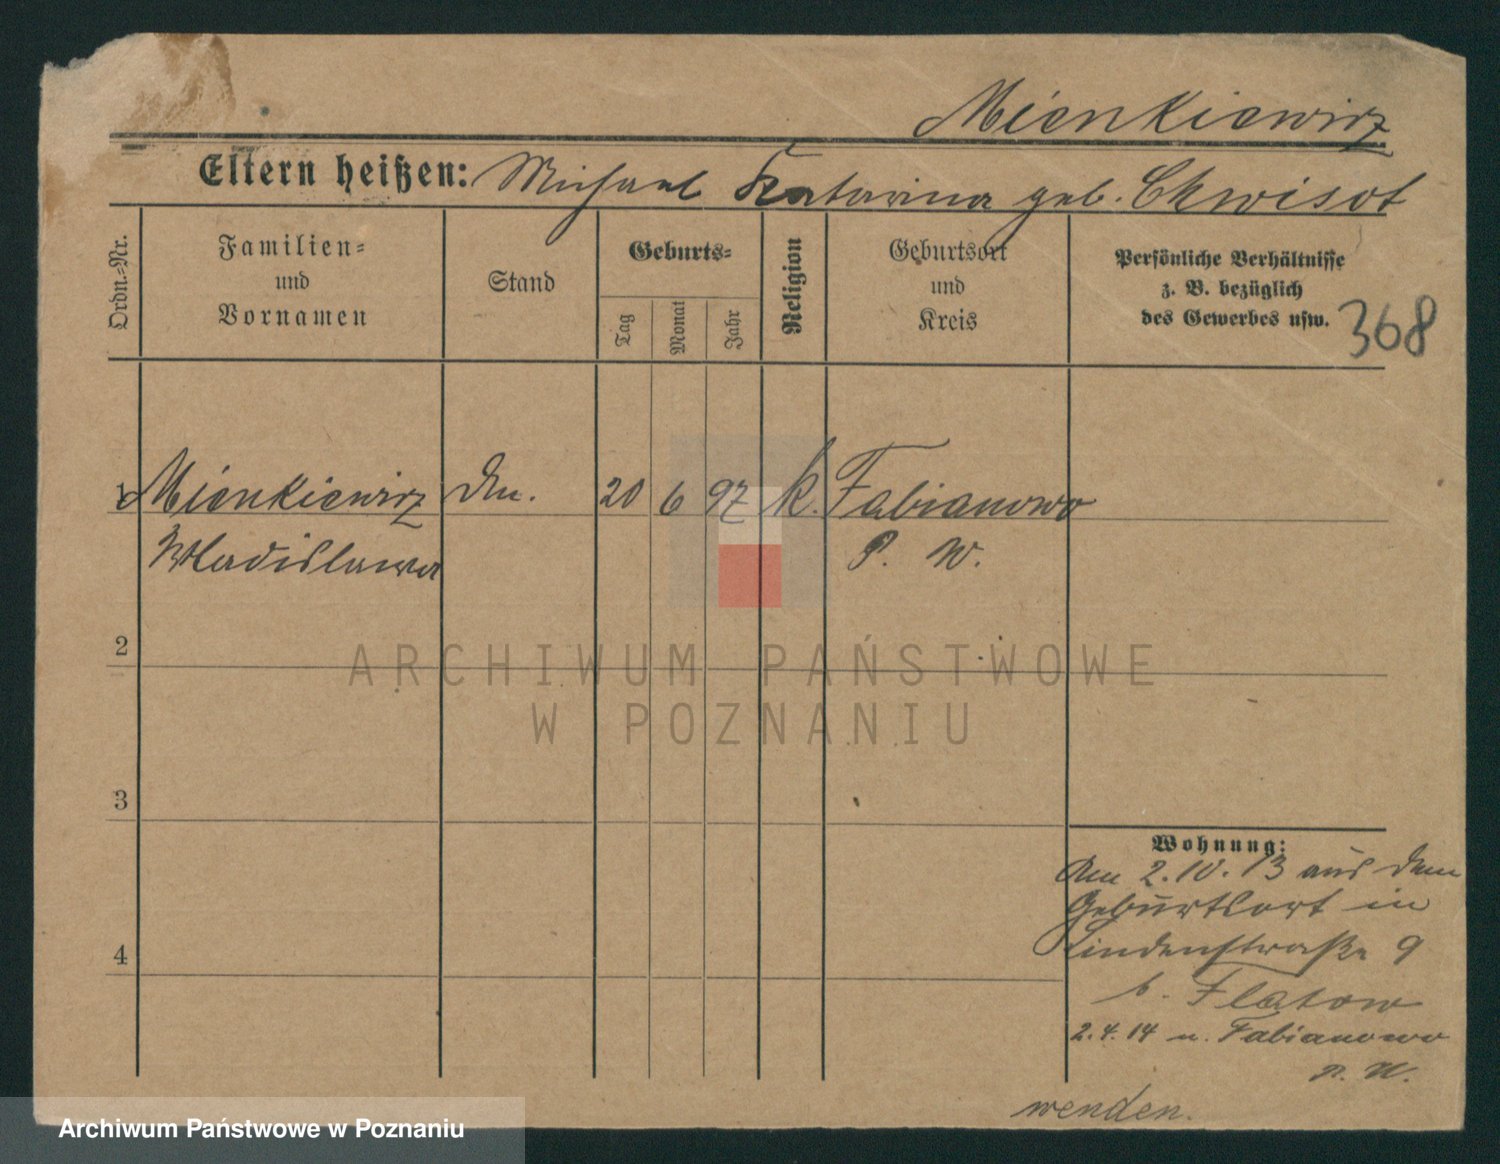 Mienkiewicz
Eltern heißen: Michael Katarina geb. Chwisot
Ordn.-Nr.
Familien-
und
Vornamen
Stand
Geburts-
Tag
Monat
Jahr
Religion
Geburtsort
und
Kreis
Persönliche Verhältnisse
z. B. bezüglich
des Gewerbes usw.
368
1 Mienkiewicz 20 6 97 k. Fabianowo
Wladislawa P. W.
2
3
4
Wohnung:
Am 2.10.13 aus dem
Geburtsort in
Lindenstraße 9
b. Flatow
2.4.14 n. Fabianowo
P. W.
wenden.
ARCHIWUM PAŃSTWOWE
W POZNANIU
Archiwum Państwowe w Poznaniu